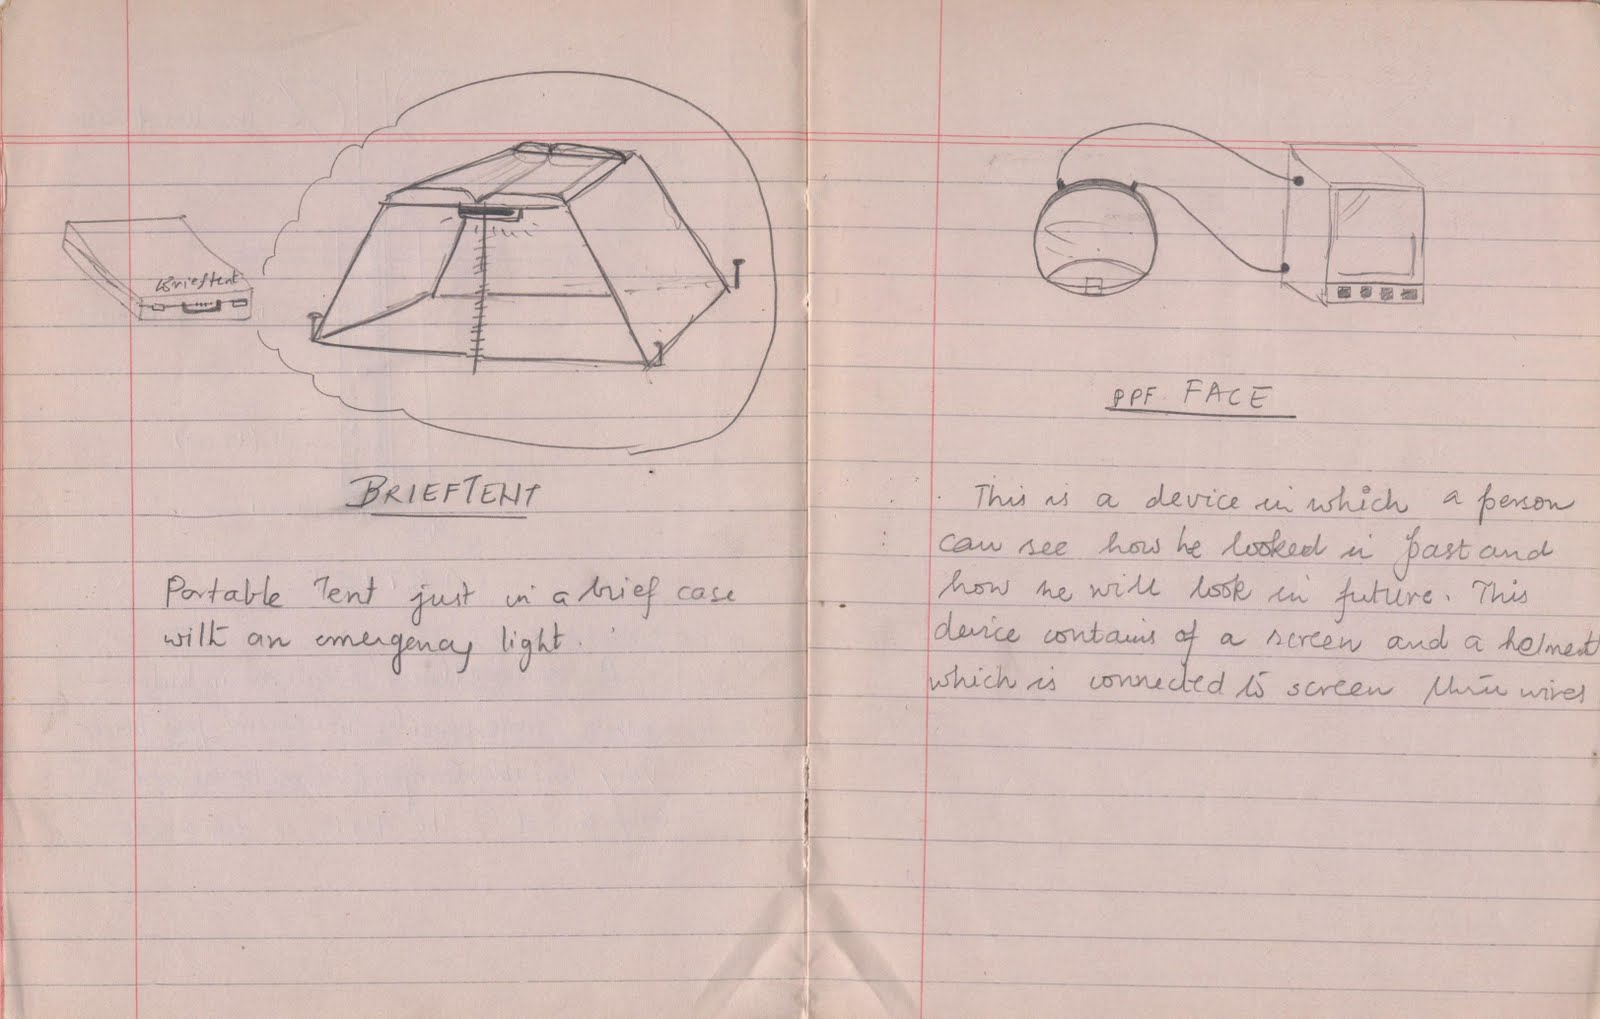 Brieftent
BRIEFTENT
Portable Tent just in a brief case
with an emergency light.
PPF FACE
This is a device in which a person
can see how he looked in past and
how he will look in future. This
device contains of a screen and a helmet
which is connected to screen thru wires